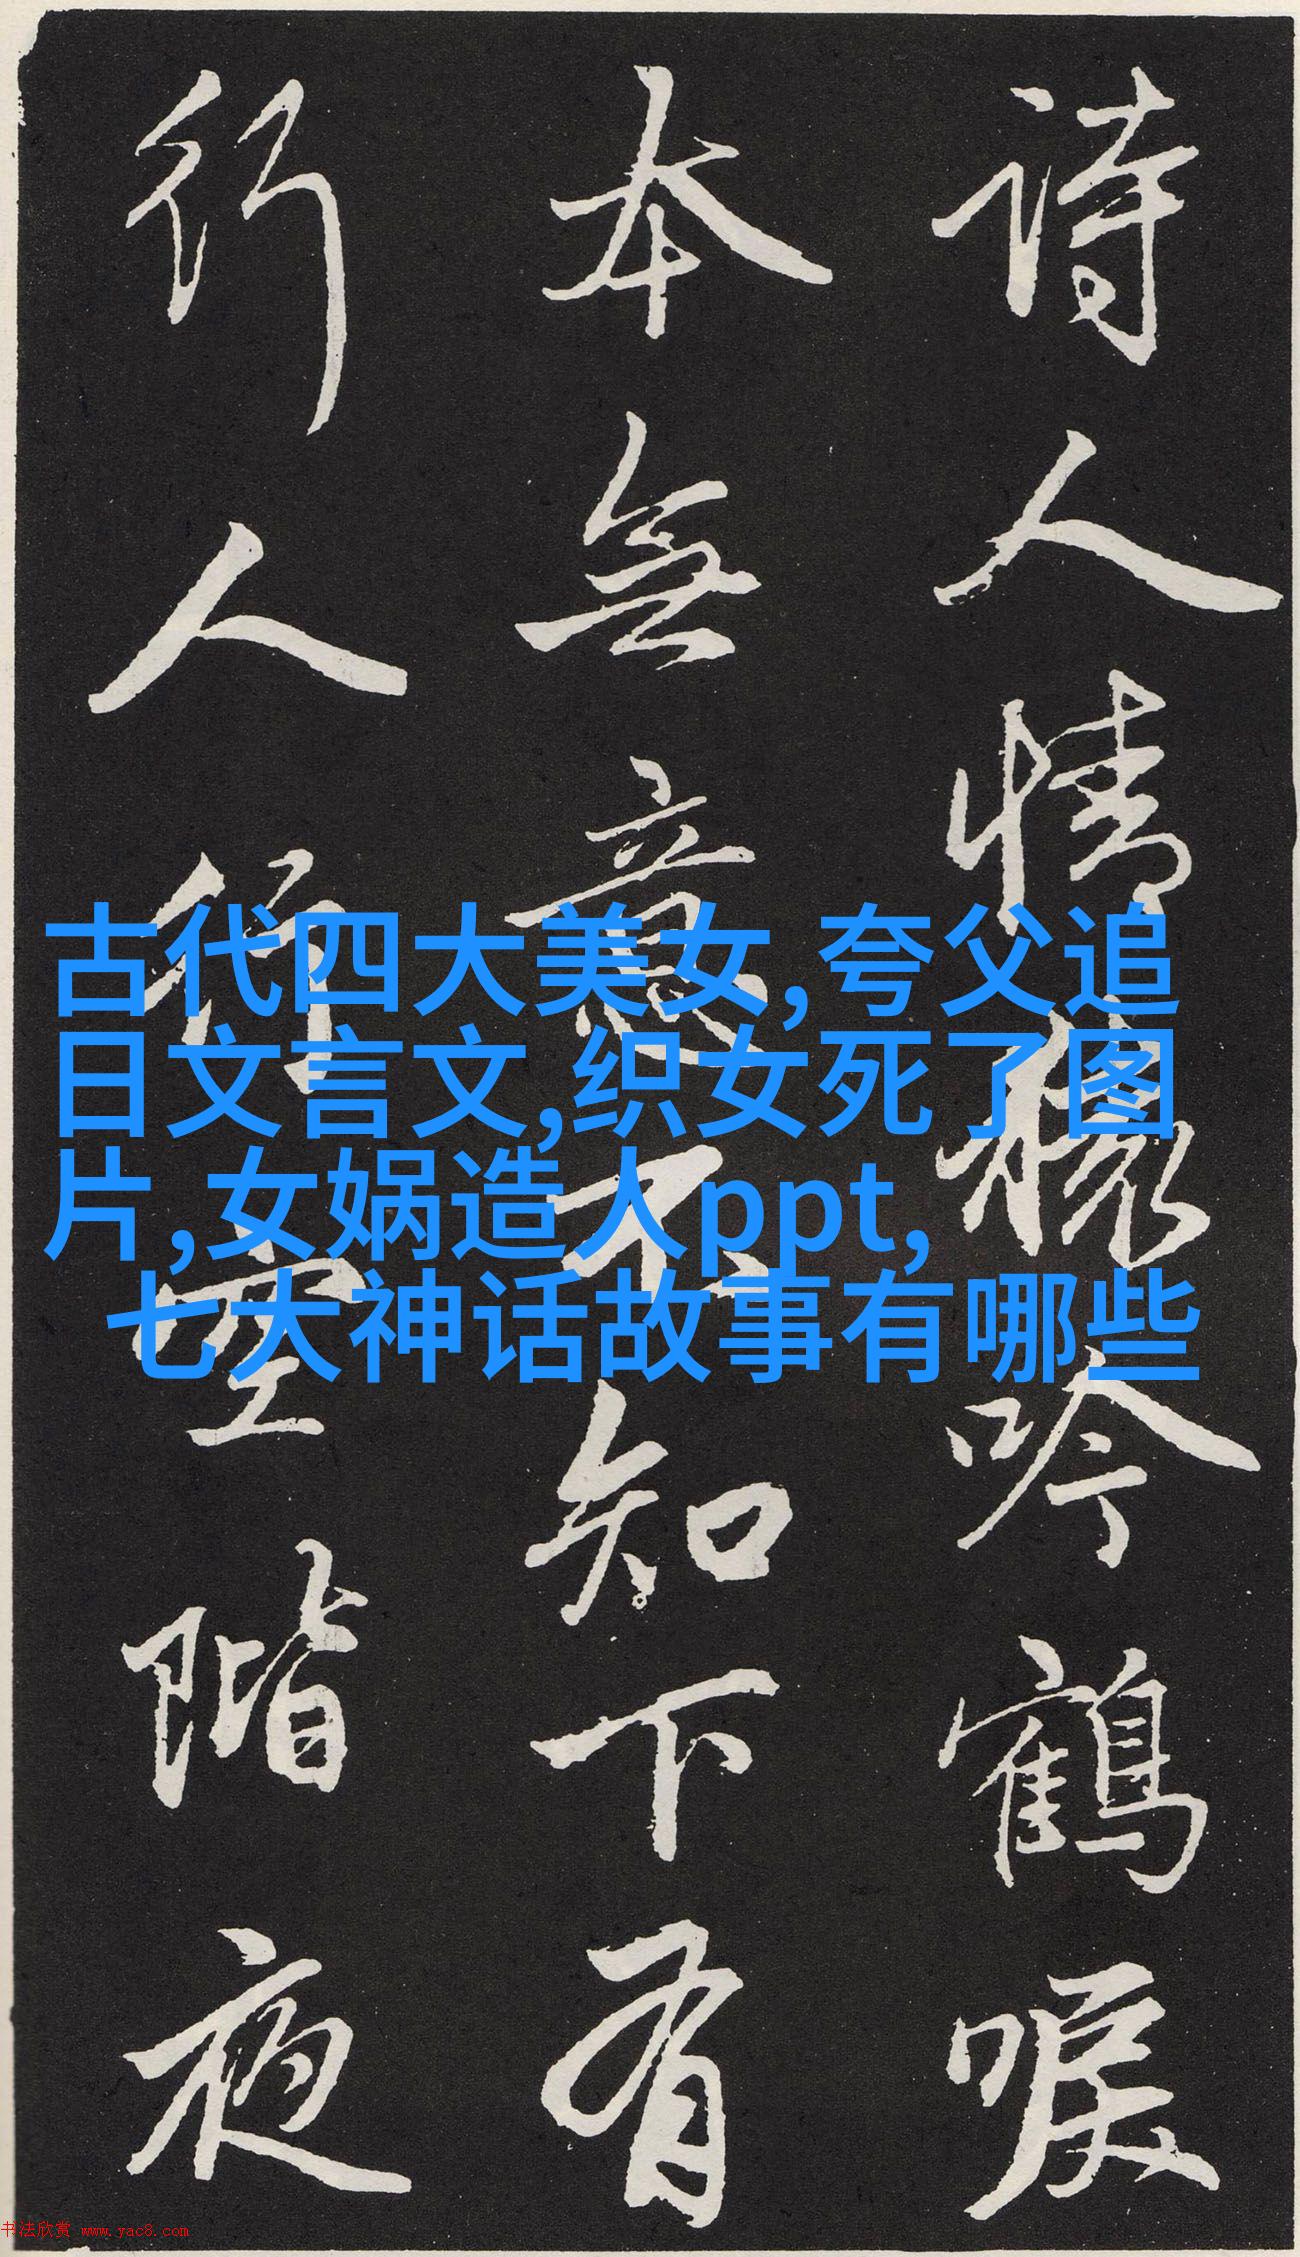 詩人情吟鶴唳
本無意不知下有
行人行空階夜
古代四大美女,夸父追
日文言文,织女死了图
片,女娲造人ppt,
七大神话故事有哪些
书法欣赏 www.yac8.com